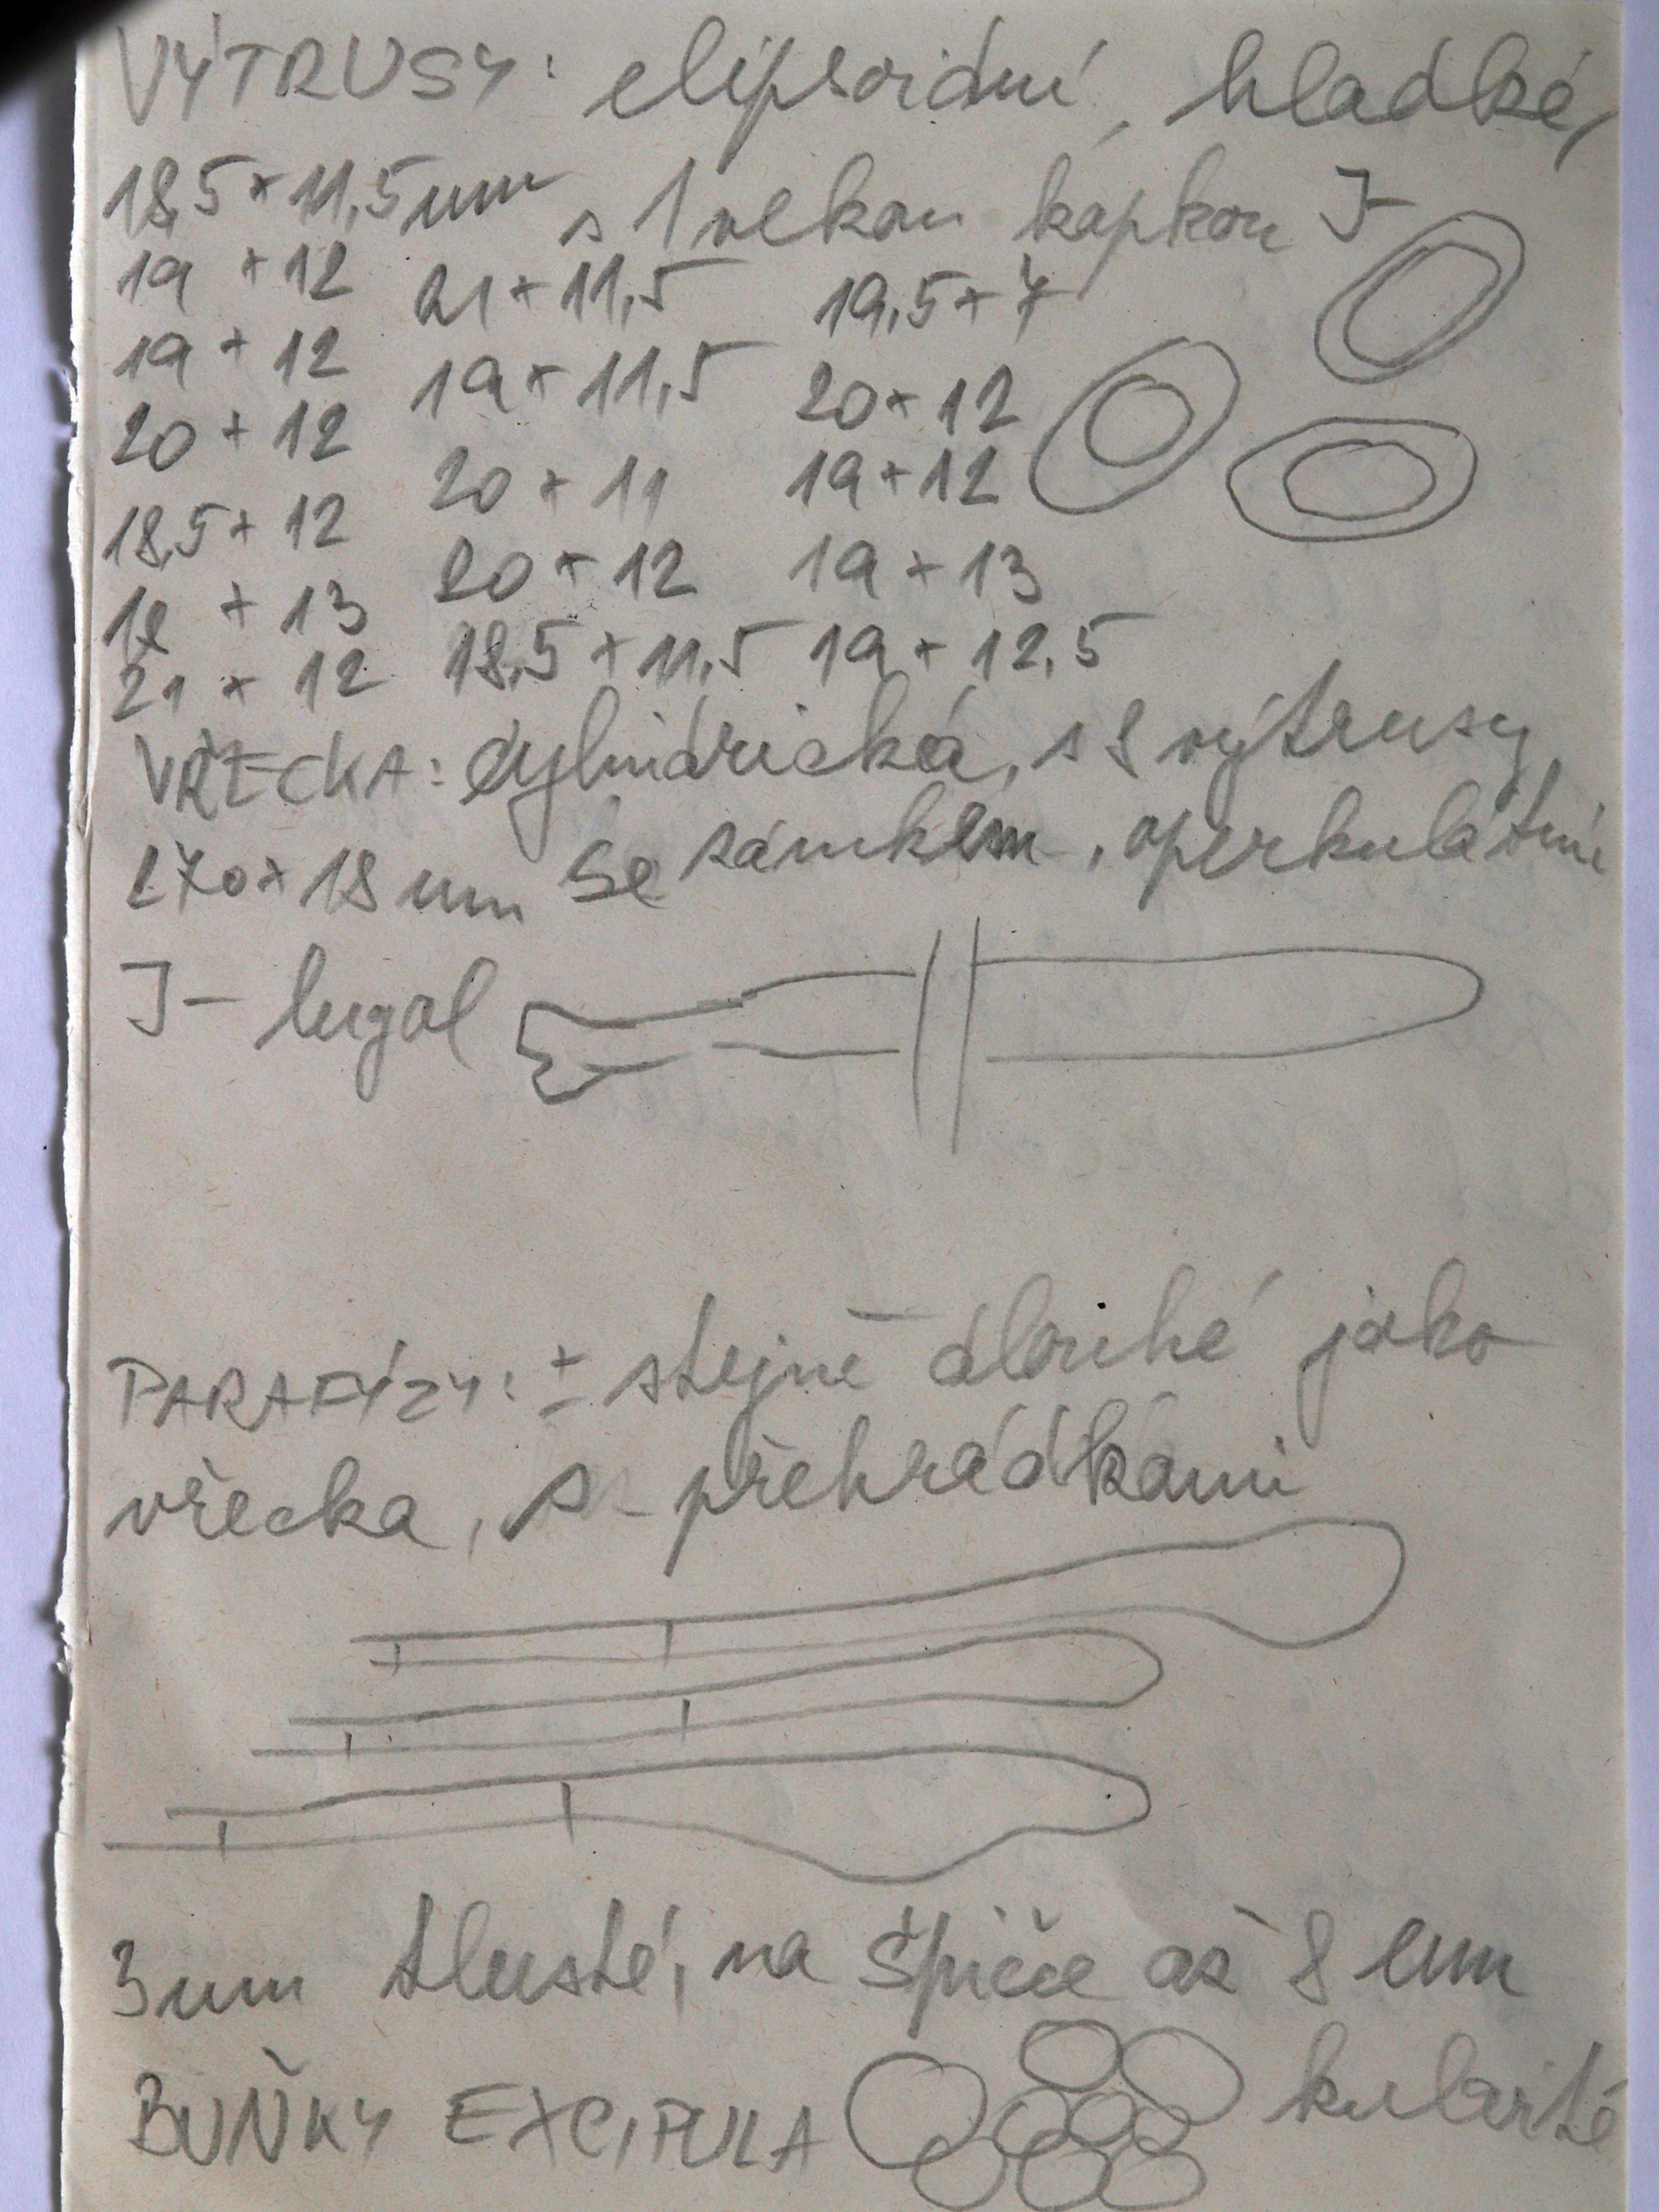 VÝTRUSY: elipsoidní, hladké,
18,5 × 11,5 um s 1 velkou kapkou J-
19 × 12 21 × 11,5 19,5 × 7
19 × 12 19 × 11,5 20 × 12
20 × 12 20 × 11 19 × 12
18,5 × 12 20 × 12 19 × 13
18 × 13 18,5 × 11,5 19 × 12,5
21 × 12
VŘECKA: cylindrická, s 8 výtrusy
270 × 18 um se zámkem, operkulátní
J- lugol
PARAFÝZY: ± stejně dlouhé jako
vřecka, s přehrádkami
3 um tlusté, na špičce až 8 um
BUŇKY EXCIPULA kulovité